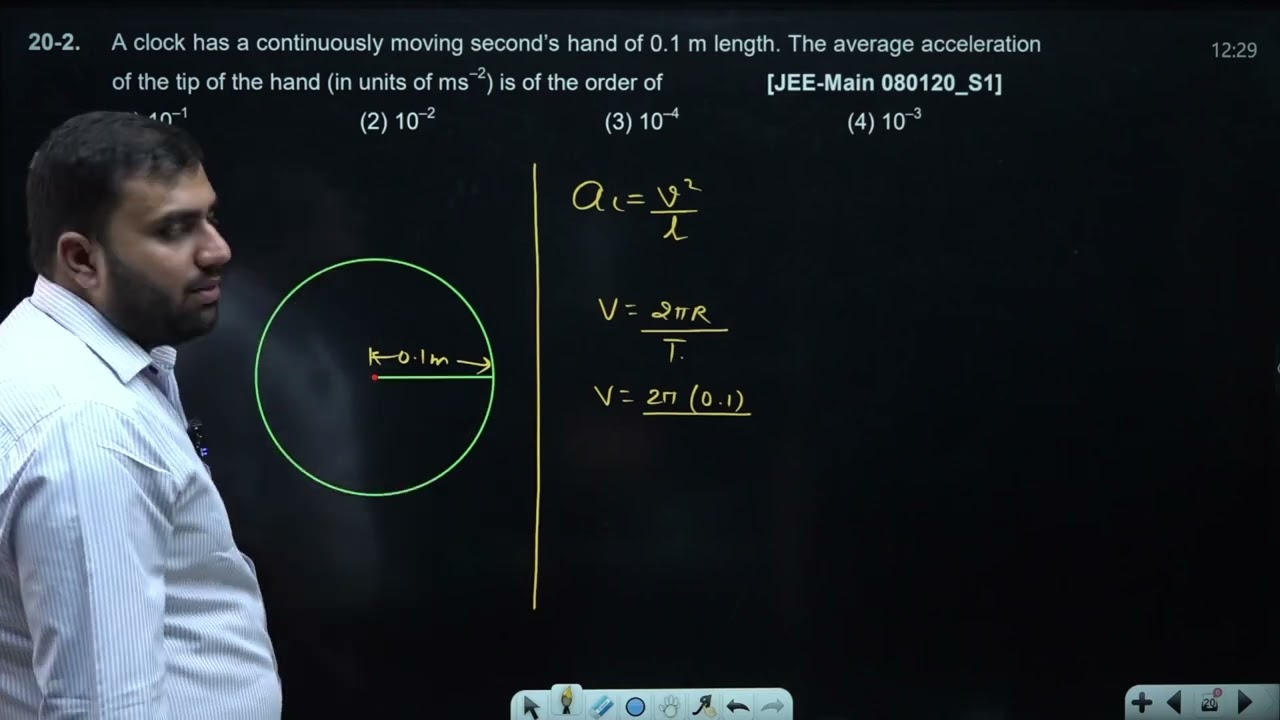 20-2. A clock has a continuously moving second's hand of 0.1 m length. The average acceleration
12:29
of the tip of the hand (in units of ms⁻²) is of the order of [JEE-Main 080120_S1]
10⁻¹ (2) 10⁻² (3) 10⁻⁴ (4) 10⁻³
a_c = v²/l
V = 2πR/T.
0.1m
V = 2π (0.1)
20